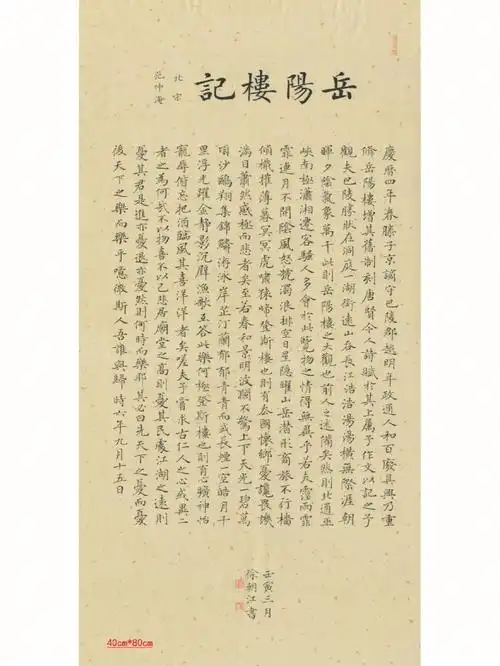 岳陽樓記
北宋
范仲淹
慶曆四年春滕子京謫守巴陵郡越明年政通人和百廢具興乃重
脩岳陽樓增其舊制刻唐賢今人詩賦於其上屬予作文以記之予
觀夫巴陵勝狀在洞庭一湖銜遠山吞長江浩浩湯湯橫無際涯朝
暉夕陰氣象萬千此則岳陽樓之大觀也前人之述備矣然則北通巫
峽南極瀟湘遷客騷人多會於此覽物之情得無異乎若夫霪雨霏
霏連月不開陰風怒號濁浪排空日星隱曜山岳潛形商旅不行檣
傾楫摧薄暮冥冥虎嘯猿啼登斯樓也則有去國懷鄉憂讒畏譏
滿目蕭然感極而悲者矣至若春和景明波瀾不驚上下天光一碧萬
頃沙鷗翔集錦鱗游泳岸芷汀蘭郁郁青青而或長煙一空皓月千
里浮光躍金靜影沉璧漁歌互答此樂何極登斯樓也則有心曠神怡
寵辱偕忘把酒臨風其喜洋洋者矣嗟夫予嘗求古仁人之心或異二
者之為何哉不以物喜不以己悲居廟堂之高則憂其民處江湖之遠則
憂其君是進亦憂退亦憂然則何時而樂耶其必曰先天下之憂而憂
後天下之樂而樂乎噫微斯人吾誰與歸時六年九月十五日
壬寅三月
徐朝江書
40cm*80cm